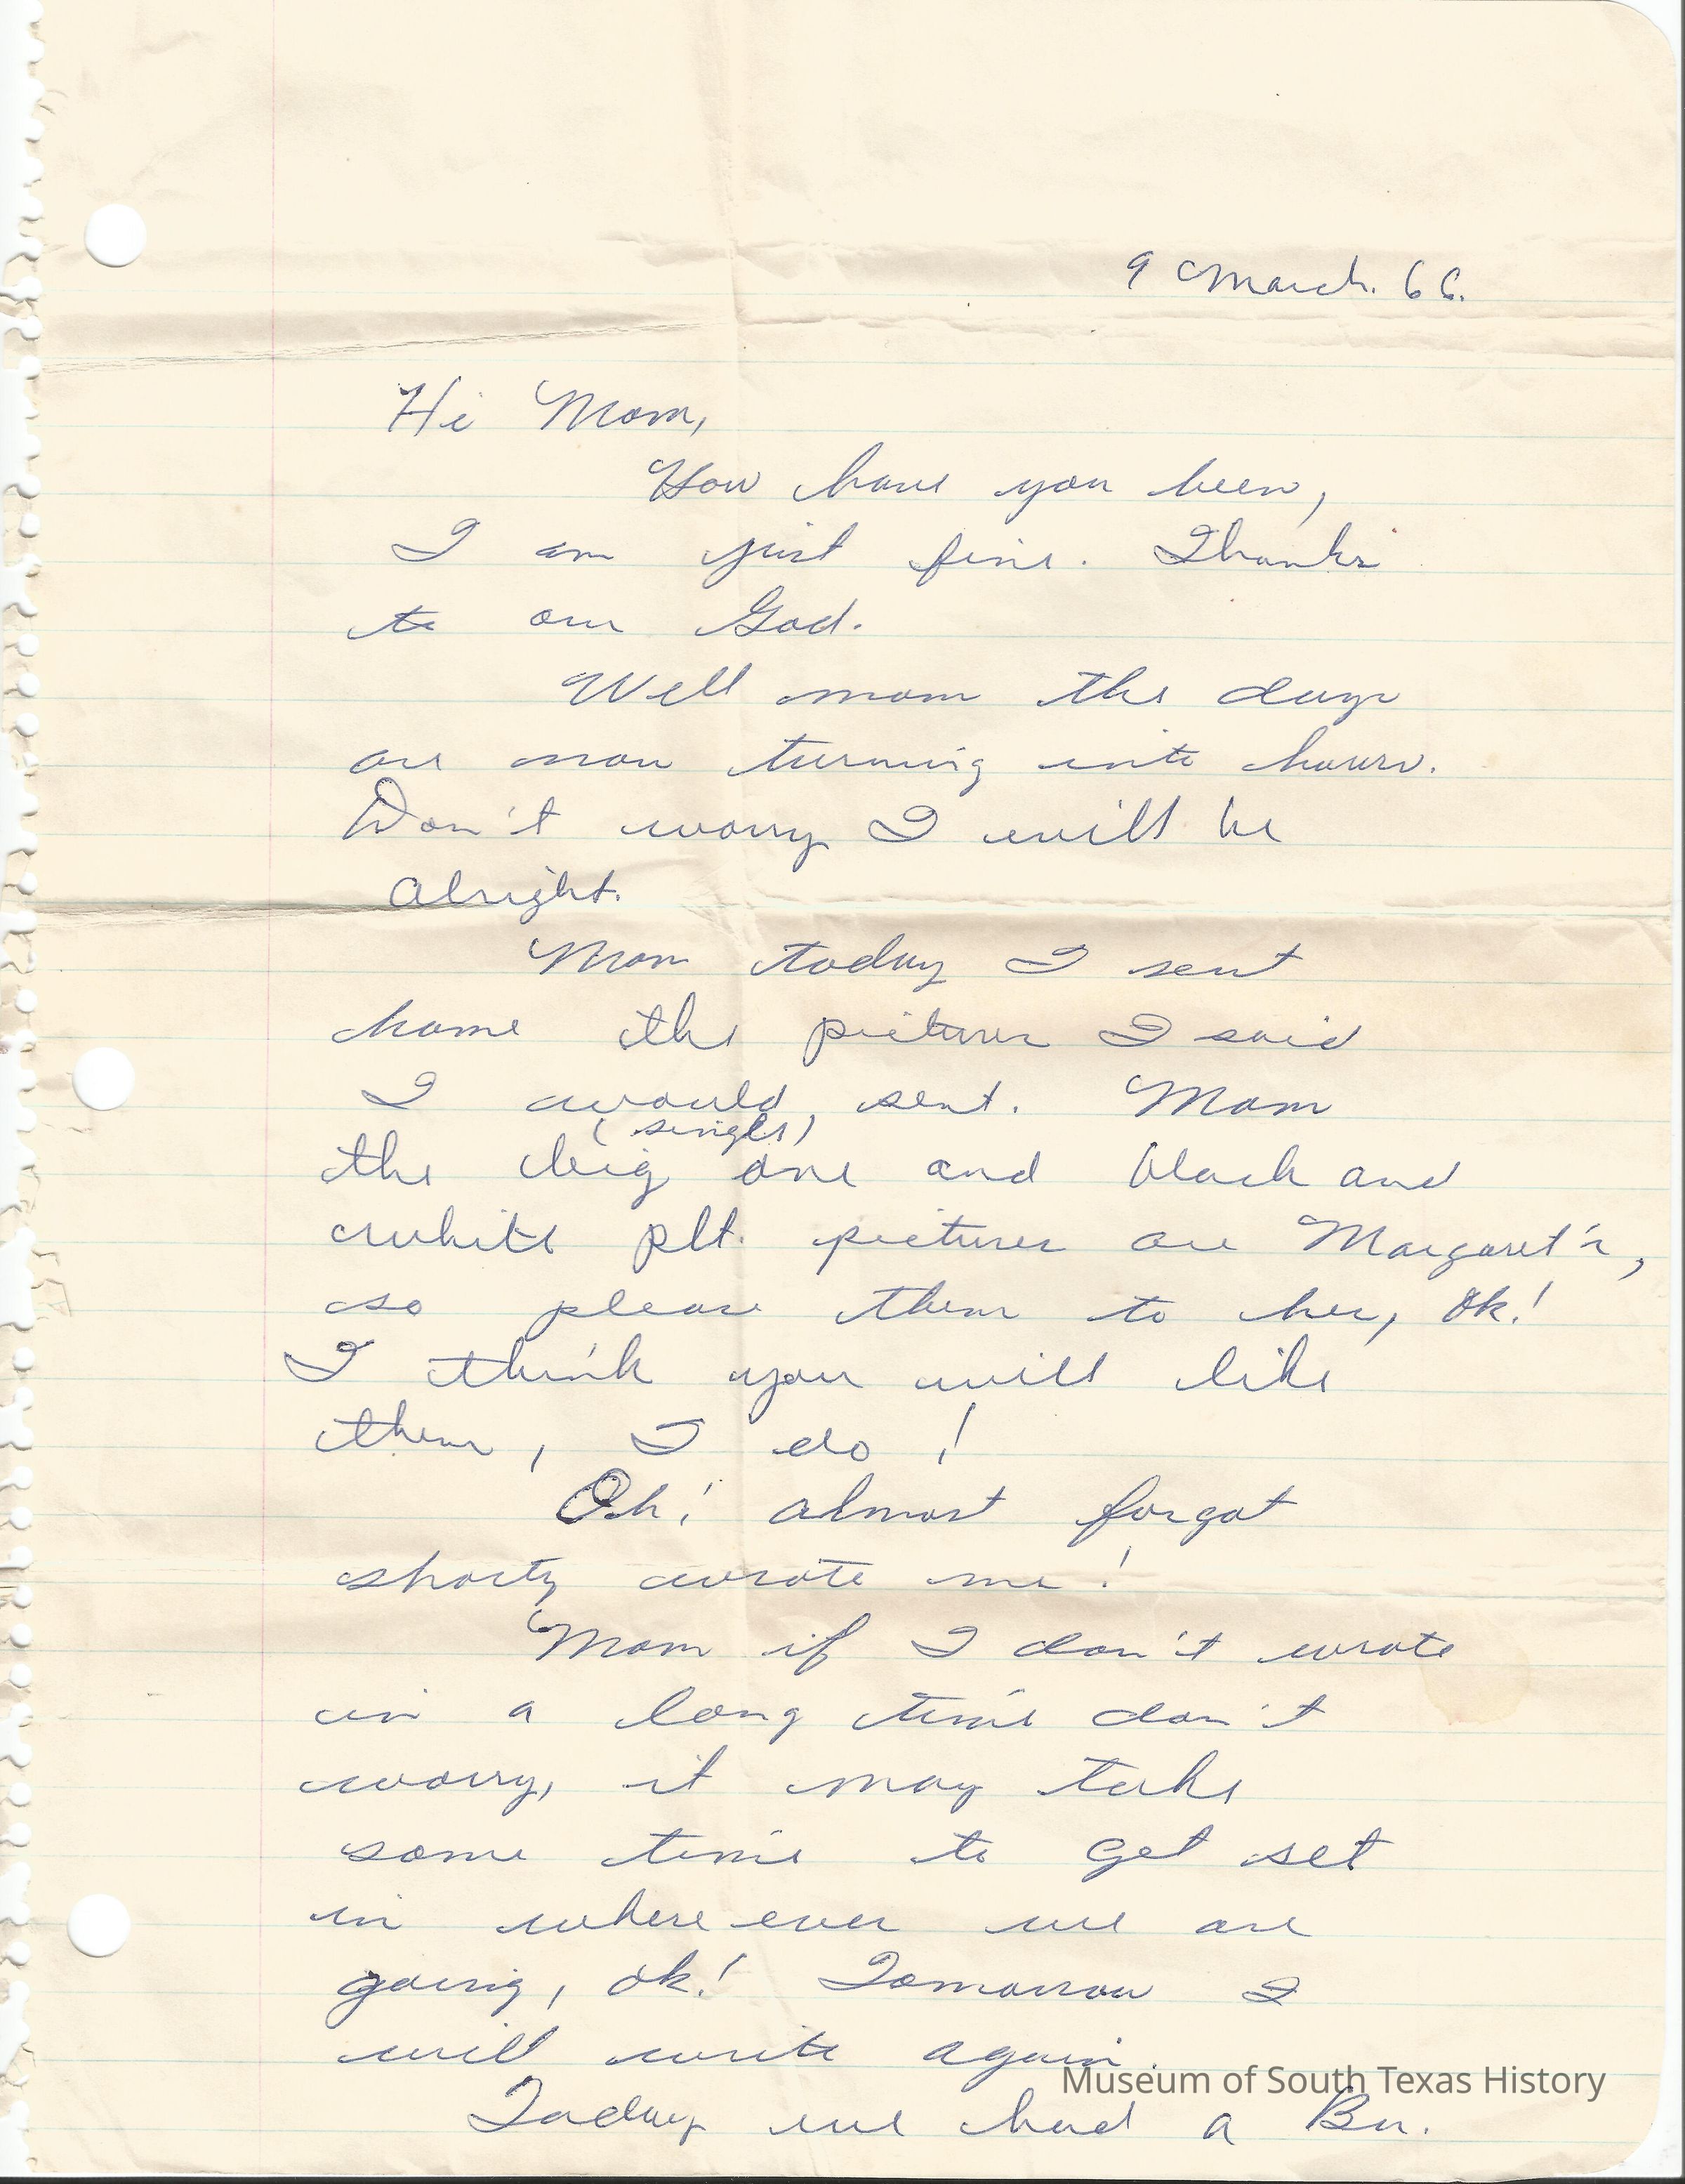 9 March. 66.
Hi Mom,
How have you been,
I am just fine. Thanks
to our God.
Well mom the days
are now turning into hours.
Don't worry I will be
alright.
Mom today I sent
home the pictures I said
I would, sent. Mom
(single)
the big one and black and
white plt. pictures are Margaret's,
so please them to her, ok!
I think you will like
them, I do!
Oh! almost forgot
shorty wrote me!
Mom if I don't wrote
in a long time don't
worry, it may take
some time to get set
in where ever we are
going, ok! Tomorrow I
will write again.
Museum of South Texas History
Today we had a Bn.